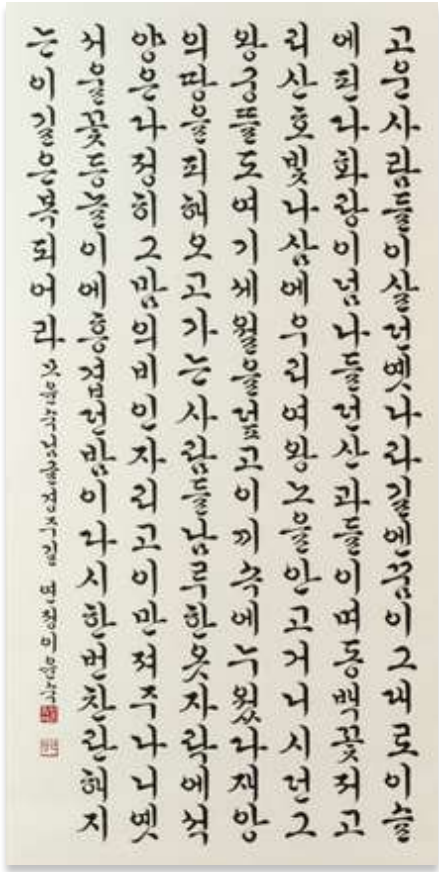 고운사람들이살던옛나라길엔꿈이그대로이슬
에핀다화랑이넘나들던산과들이며동백꽃저고
리산호빛나삼에우리여왕노을안고거니시던그
왕궁뜰도여기세월을덮고이끼속에누웠다재앙
의땅을피해오고가는사람들남루한옷자락에석
양은다정히그맘의비인자리고이만져주나니옛
서울꽃등놀이에흥겹던밤이다시한번찬란해지
는이길은복되어라 모윤숙님글경주길 연정이윤숙